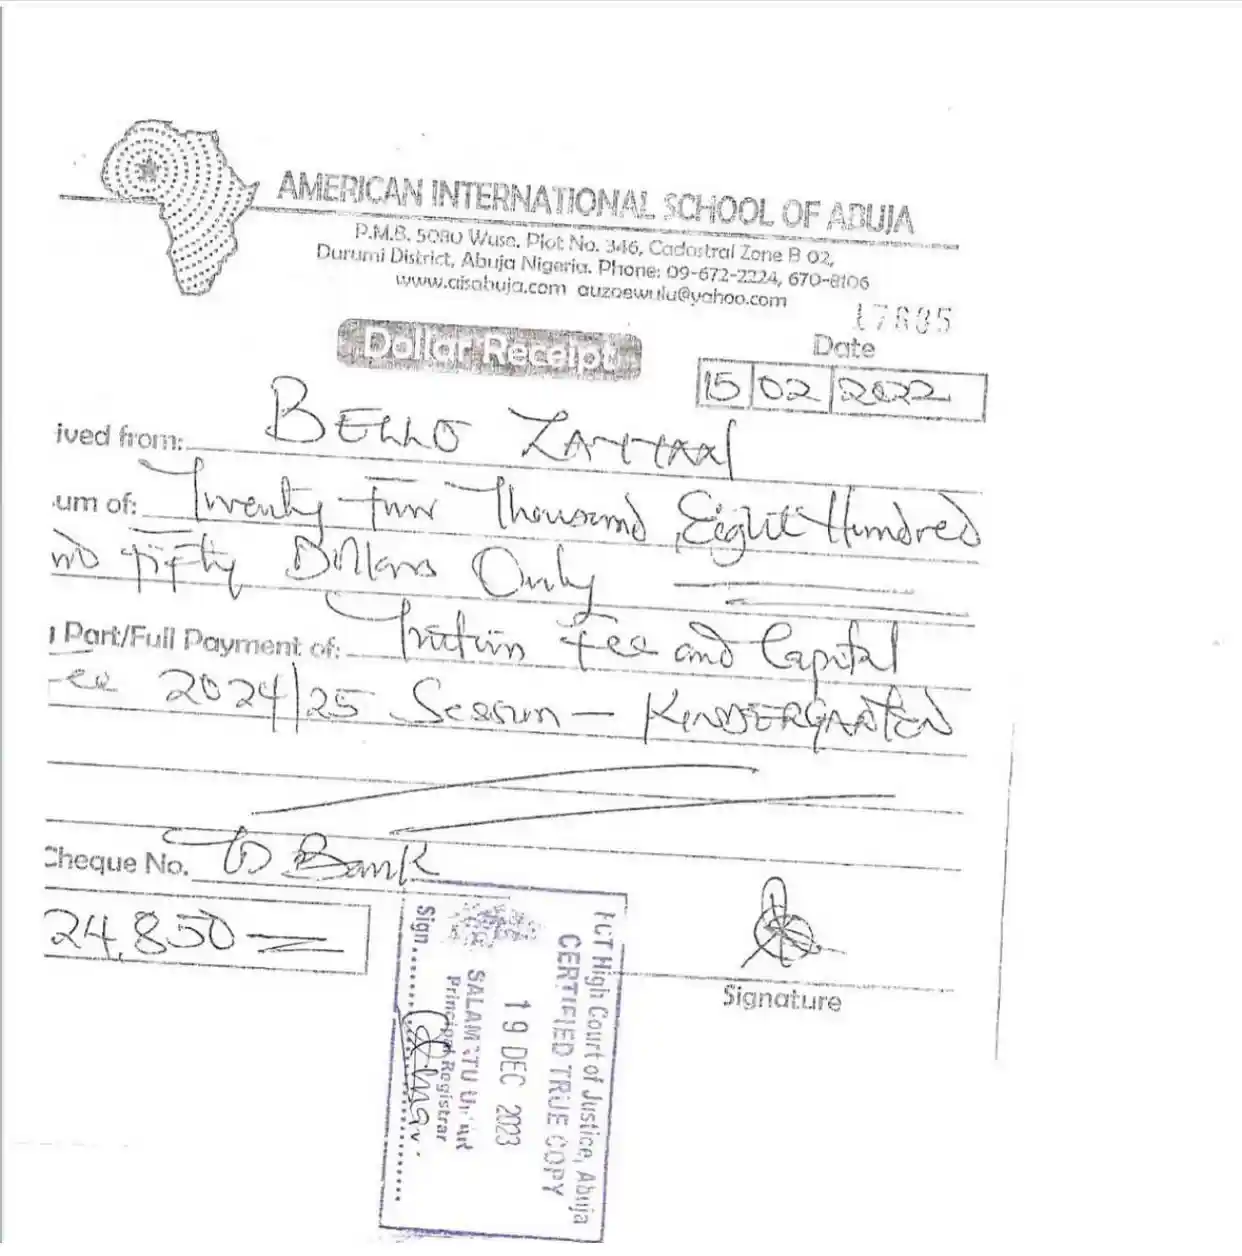 AMERICAN INTERNATIONAL SCHOOL OF ABUJA
P.M.B. 5080 Wuse. Plot No. 346, Cadastral Zone B 02,
Durumi District, Abuja Nigeria. Phone: 09-672-2224, 670-8106
www.aisabuja.com auzoewulu@yahoo.com
Dollar Receipt
Date
15 02 2022
ived from: BELLO
um of: Twenty Four Thousand Eight Hundred
nd fifty Dollars Only
g Part/Full Payment of: Tuition fee and Capital
ee 2024/25 Session - KINDERGARTEN
Cheque No. To Bank
24,850=
Signature
FCT High Court of Justice, Abuja
CERTIFIED TRUE COPY
19 DEC 2023
Principal Registrar
Sign.